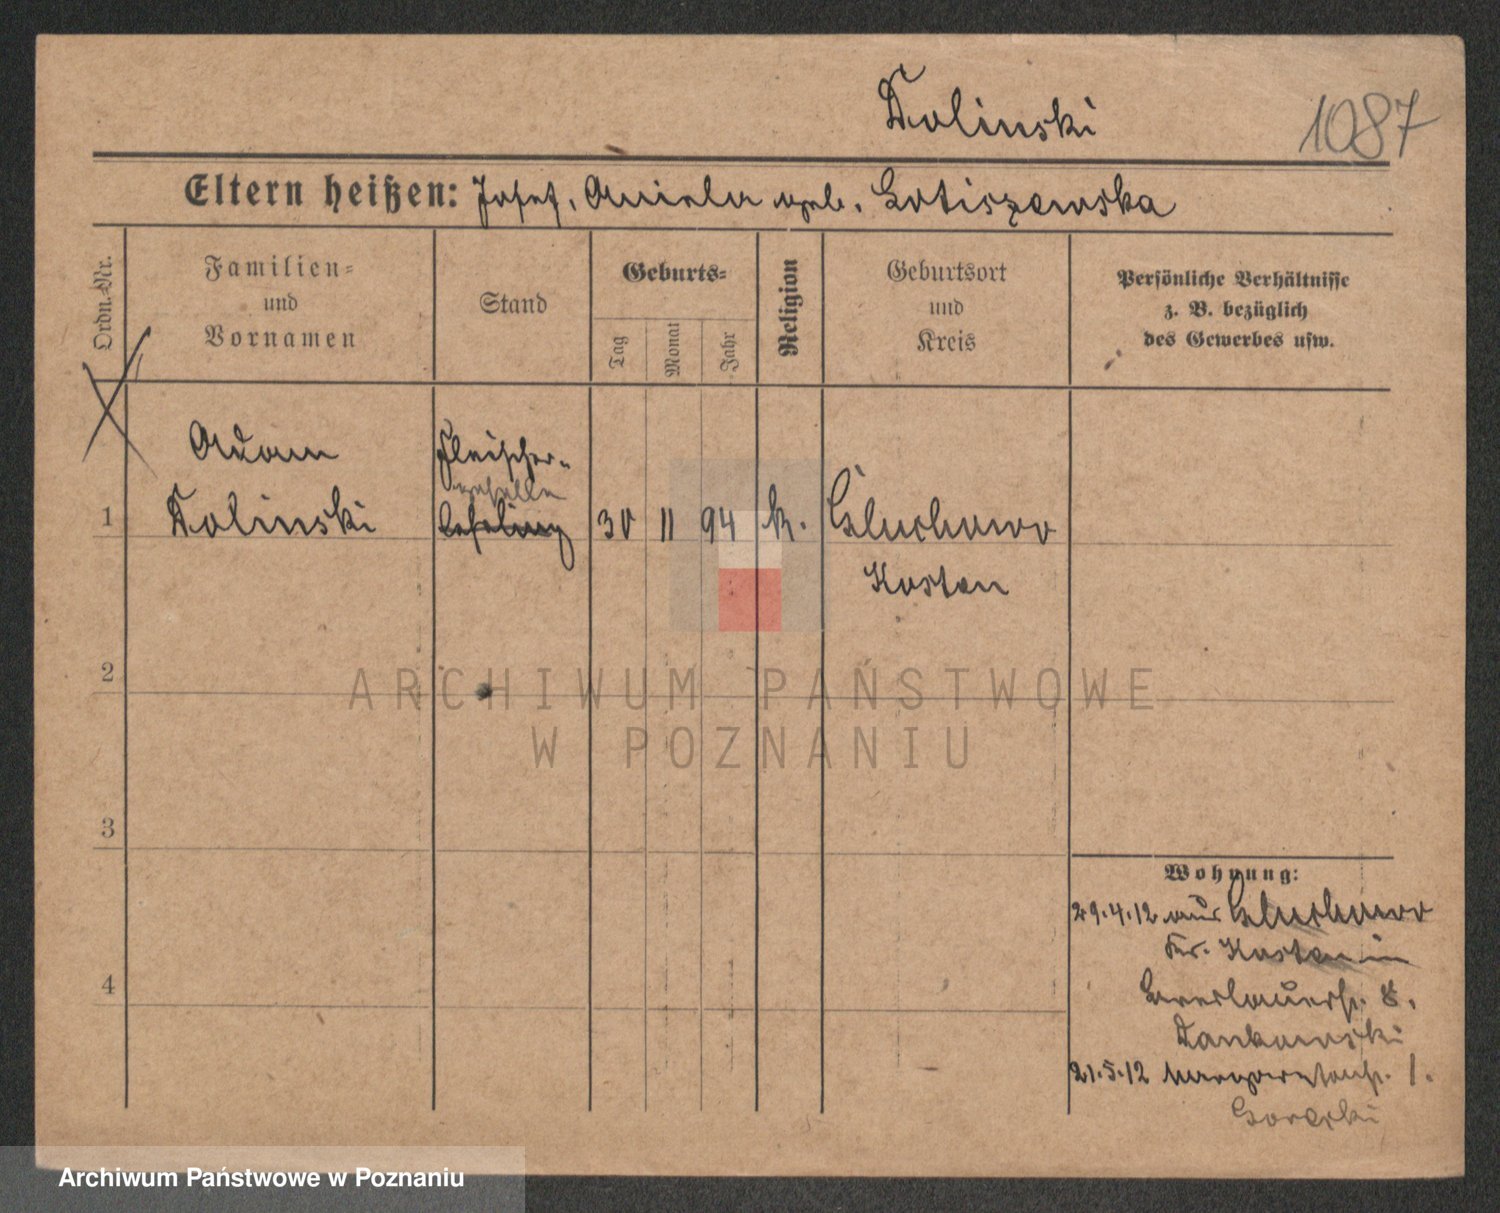 Dolinski
1087
Eltern heißen: Josef, Aniela geb. Gotiszewska
Ordn.-Nr.
Familien-
und
Vornamen
Stand
Geburts-
Tag
Monat
Jahr
Religion
Geburtsort
und
Kreis
Persönliche Verhältnisse
z. B. bezüglich
des Gewerbes usw.
Adam
Fleischer-
geselle
1 Dolinski lehrling 30 11 94 k. Gluchowo
Kosten
2
3
4
Wohnung:
29.4.12 aus Gluchowo
Kr. Kosten in
Breslauerstr. 8.
Dankowski
21.5.12 Margaretenstr. 1.
Gorski
ARCHIWUM PAŃSTWOWE
W POZNANIU
Archiwum Państwowe w Poznaniu